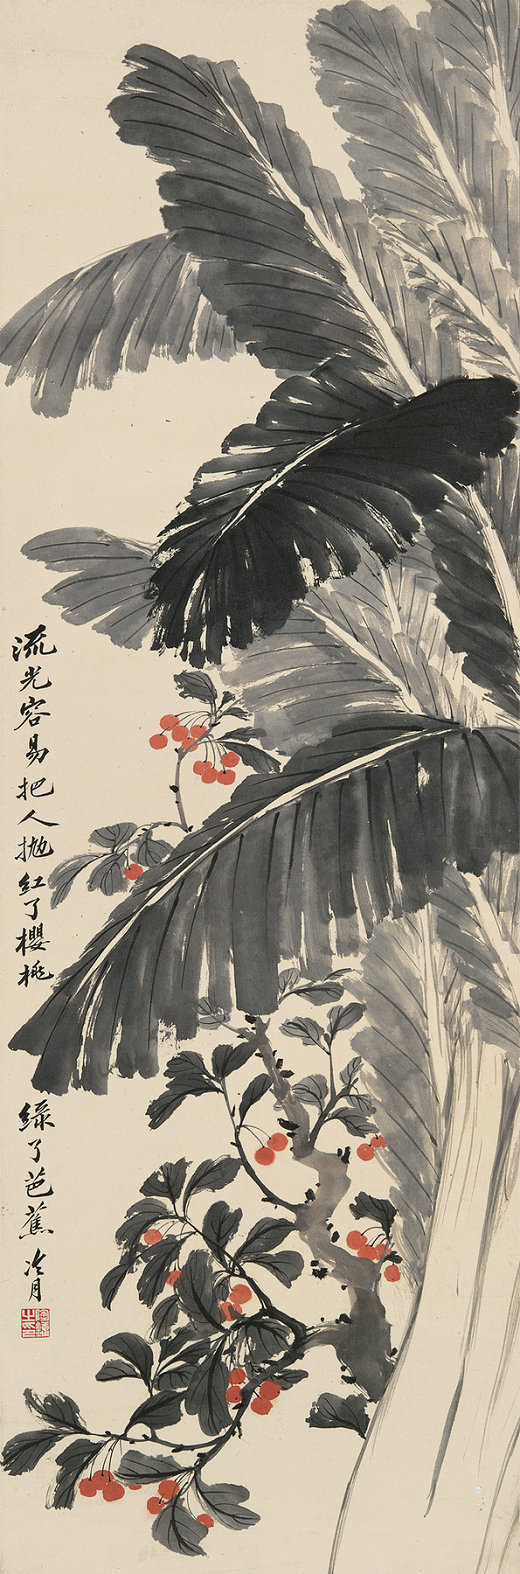 流光容易把人抛红了樱桃
绿了芭蕉 冷月